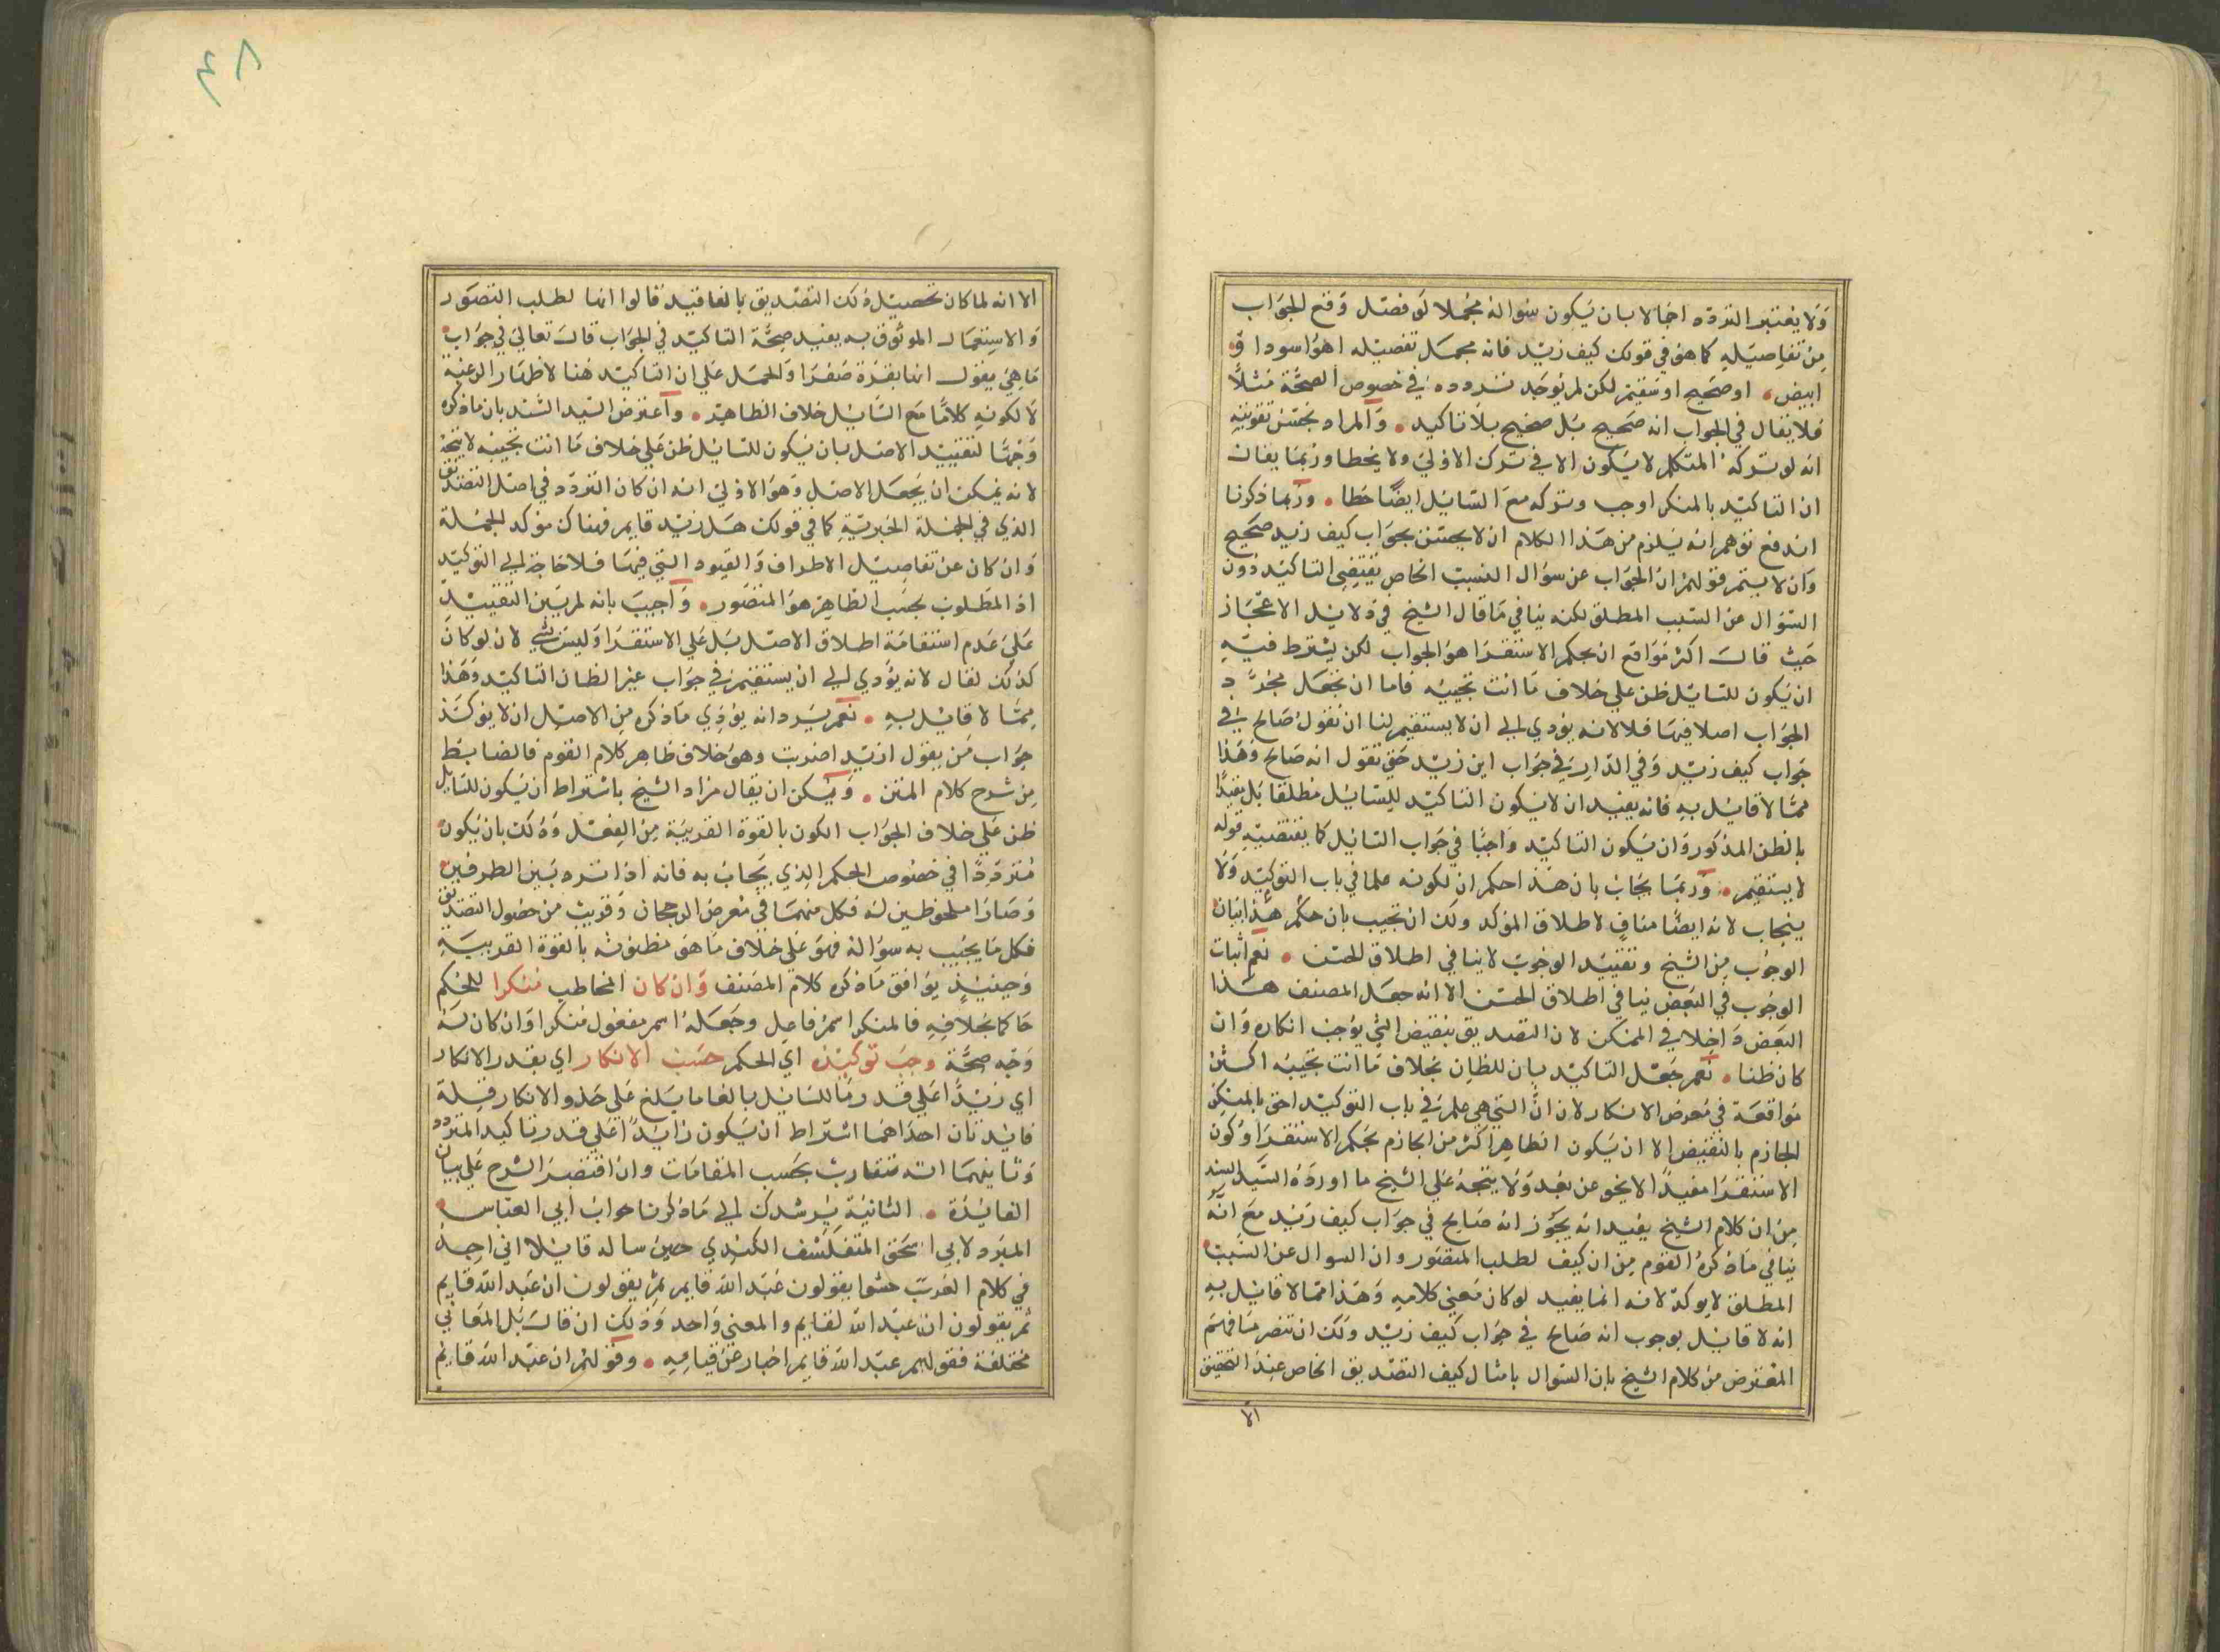 ولا يعتبر التردد اجمالا بان يكون سؤاله مجملا لو فصل وقع الجواب
من تفاصيله كما هو في قولك كيف زيد فانه مجمل تفصيله اهو اسود او
ابيض او صحيح او سقيم لكن لم يوجد تردده في خصوص الصحة مثلا
فلا يقال في الجواب انه صحيح بل صحيح بلا تاكيد والمراد بحسن تقويته
انه لو تركه المتكلم لا يكون الا في ترك الاولى ولا يخطا وربما يقال
ان التاكيد بالمنكر اوجب وتركه مع السايل ايضا خطا وربما ذكرنا
اندفع توهم انه يلزم من هذا الكلام ان لا يحسن بجواب كيف زيد صحيح
وان لا يستمر قولهم ان الجواب عن سؤال السبب الخاص يقتضي التاكيد دون
السؤال عن السبب المطلق لكنه ينافي ما قال الشيخ في دلايل الاعجاز
حيث قال اكثر مواقع ان بحكم الاستقرا هو الجواب لكن يشترط فيه
ان يكون للسايل ظن على خلاف ما انت تجيبه فاما ان نجعل مجرد
الجواب اصلا فيها فلا لانه يؤدي الى ان لا يستقيم لنا ان نقول صالح في
جواب كيف زيد وفي الدار في جواب اين زيد حتى نقول انه صالح وهذا
مما لا قايل به فانه يفيد ان لا يكون التاكيد للسايل مطلقا بل مقيدا
بالظن المذكور وان يكون التاكيد واجبا في جواب السايل كما يقتضيه قوله
لا يستقيم وربما يجاب بان هذا حكم ان لكونه علما في باب التوكيد ولا
ينجاب لانه ايضا مناف لاطلاق المؤكد ولك ان تجيب بان حكم هذا بيان
الوجوب من الشيخ وتقييد الوجوب لا ينافي اطلاق الحسن نعم اثبات
الوجوب في البعض ينافي اطلاق الحسن الا انه جعل المصنف هذا
البعض داخلا في المنكر لان التصديق بنقيض الشي يوجب انكاره وان
كان ظنا نعم جعل التاكيد بان للظان بخلاف ما انت تجيبه اكثر
مواقعة في معرض الانكار لان ان التي هي علم في باب التوكيد احق بالمنكر
الجازم بالنقيض الا ان يكون الظاهر اكثر من الجازم بحكم الاستقرا وكون
الاستقرا مفيدا لا يخو عن بعد ولا يتجه على الشيخ ما اورده السيد السند
من ان كلام الشيخ يفيد انه يجوز انه صالح في جواب كيف زيد مع انه
ينافي ما ذكره القوم من ان كيف لطلب التصور وان السوال عن السبب
المطلق لا يوكد لانه انما يفيد لو كان معنى كلامه وهذا مما لا قايل به
انه لا قايل بوجوب انه صالح في جواب كيف زيد ولك ان تنصر ما فهم
المعترض من كلام الشيخ بان السوال بامثال كيف التصديق الخاص عند التحقيق
الا
٤٨
الا انه لما كان تحصيل ذلك التصديق بالغا قيد قالوا انها لطلب التصور
والاستعمال الموثوق به يفيد صحة التاكيد في الجواب قال تعالى في جواب
ما هي يقول انها بقرة صفرا والحمل على ان التاكيد هنا لاظهار الرغبة
لا لكونه كلاما مع السايل خلاف الظاهر واعترض السيد السند بان ما ذكره
وجها لتقييد الاصل بان يكون للسايل ظن على خلاف ما انت تجيبه لا يتجه
لانه يمكن ان يجعل الاصل وهو الاولى انه ان كان التردد في اصل التصديق
الذي في الجملة الخبرية كما في قولك هل زيد قايم فهناك مؤكد للجملة
وان كان عن تفاصيل الاطراف والقيود التي فيها فلا حاجة الى التوكيد
اذ المطلوب بحسب الظاهر هو المتصور واجيب بانه لم يبن التقييد
على عدم استقامة اطلاق الاصل بل على الاستقرا وليس بشي لان لو كان
كذلك لقال لانه يؤدي الى ان يستقيم في جواب غير الظان التاكيد وهذا
مما لا قايل به نعم يرد انه يؤدي ما ذكره من الاصل ان لا يوكد
جواب من يقول ازيد اضربت وهو خلاف ظاهر كلام القوم فالضابط
من شرح كلام المتن ويمكن ان يقال مراد الشيخ باشتراط ان يكون للسايل
ظن على خلاف الجواب الكون بالقوة القريبة من الفعل وذلك بان يكون
مترددا في خصوص الحكم الذي يجاب به فانه اذا تردد بين الطرفين
وصارا ملحوظين له فكل منهما في معرض الرجحان وقريب من حصول التصديق
فكل ما يجيب به سؤاله فهو على خلاف ما هو مظنونه بالقوة القريبة
وحينيذ يوافق ما ذكره كلام المصنف وان كان المخاطب منكرا للحكم
حاكما بخلافه فالمنكر اسم فاعل وجعله اسم مفعول منكرا وان كان له
وجه صحة وجب توكيده اي الحكم حسب الانكار اي بقدر الانكار
اي زيدا على قدر ما للسايل بالغا ما يبلغ على حذو الانكار قلة
فايدتان احداهما اشتراط ان يكون زايدا على قدر تاكيد المتردد
وثانيهما انه متفاوت بحسب المقامات وان اقتصر الشرح على بيان
الفايدة الثانية يرشدك الى ما ذكرنا جواب ابي العباس
المبرد لابي اسحق المتفلسف الكندي حين ساله قايلا اني اجد
في كلام العرب حشوا يقولون عبد الله قايم ثم يقولون ان عبد الله قايم
ثم يقولون ان عبد الله لقايم والمعنى واحد وذلك ان قال بل المعاني
مختلفة فقولهم عبد الله قايم اخبار عن قيامه وقولهم ان عبد الله قايم